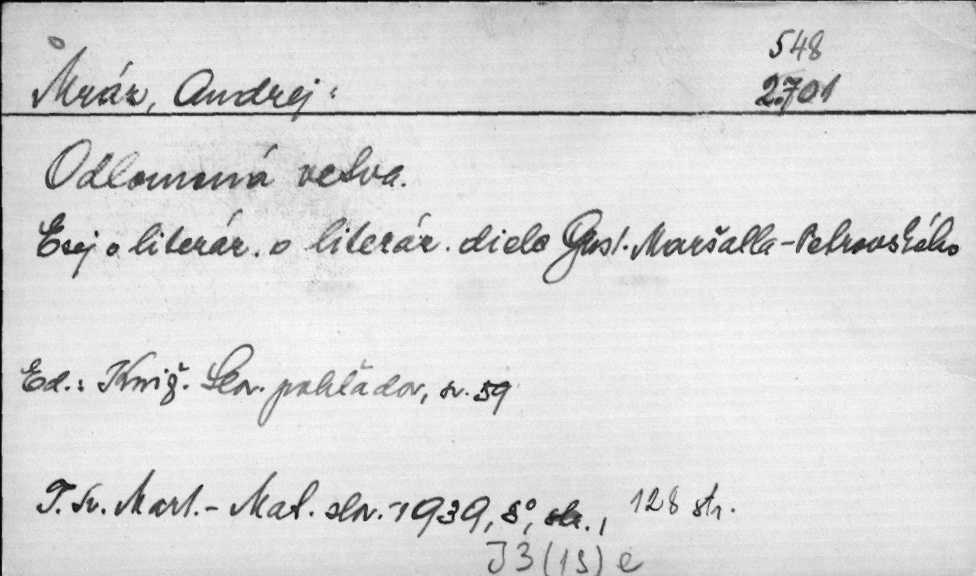 548
Mráz, Andrej:
2.701
Odlomená vetva.
Esej o literár. o literár. diele Gust. Maršalla-Petrovského
Ed.: Kniž. Slov. pohľadov, sv. 59
T. Sv. Mart. - Mat. slov. 1939, 8°, str., 128 str.
J3(1S) e